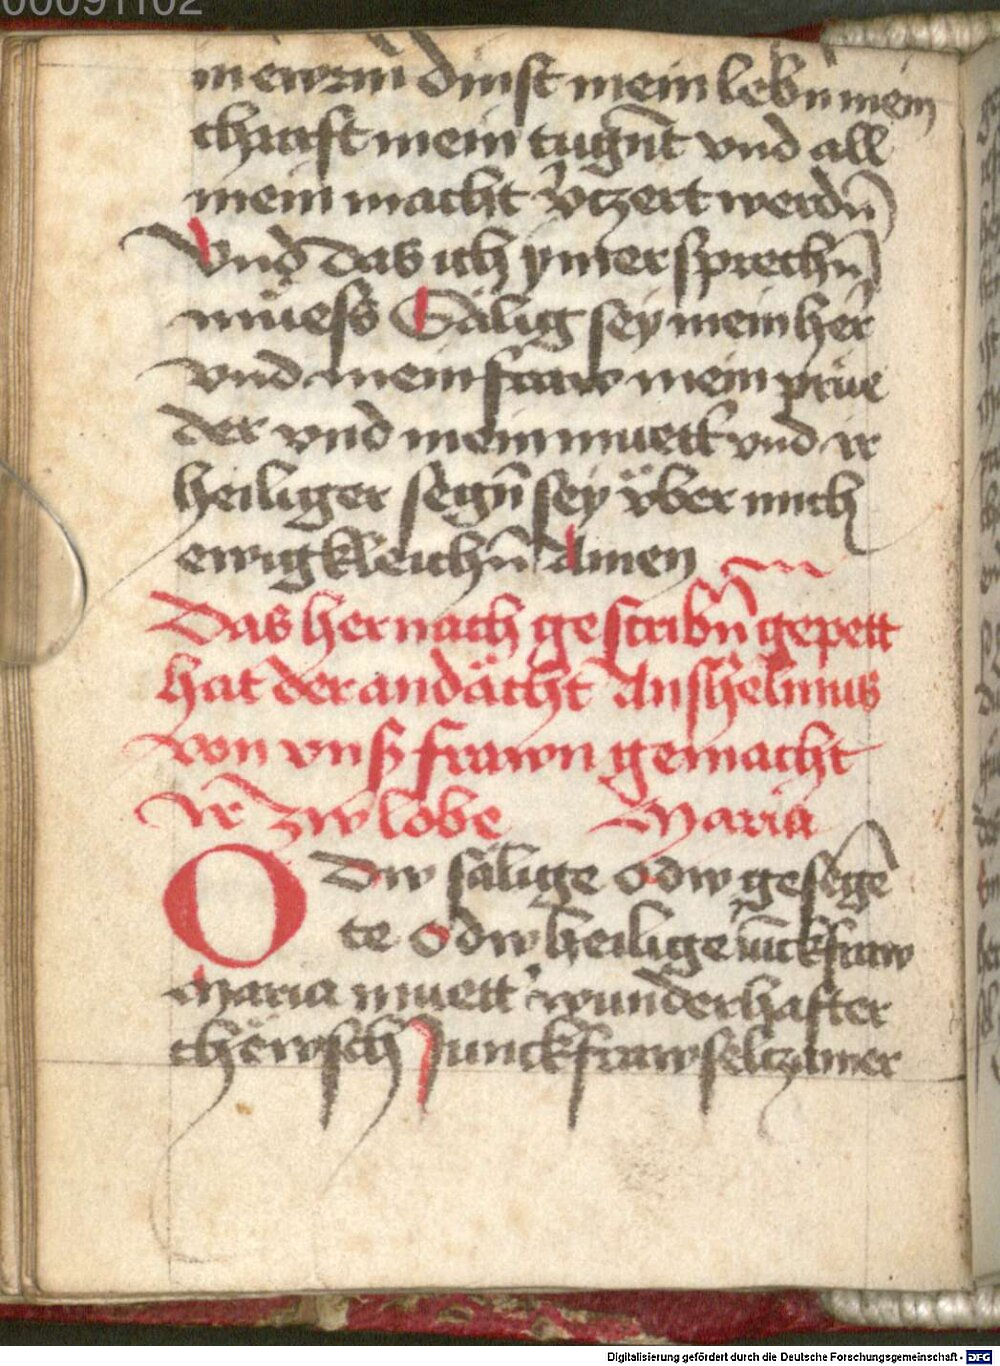 00091102
in ewrm dinst mein lebn̄ mein
chrafft mein tugn̄t vnd all
mein macht v̄tzert werdn̄
Vnd das ich ymer sprechn̄
müess Sälig sey mein her̄
vnd mein fraw mein prüe
der vnd mein muett vnd ir
heiliger segn̄ sey vber mich
ewigkleichn̄ Amen
Das hernach gescribn̄ gepett
hat der andächt Anshelmus
von vnß frawn gemacht
Ir zw lobe Maria
O Dw sälige o dw gesege
te o dw heilige iūckfraw
Maria muett' wunderhafter
chewsch Junckfraw seltzamer
Digitalisierung gefördert durch die Deutsche Forschungsgemeinschaft - DFG